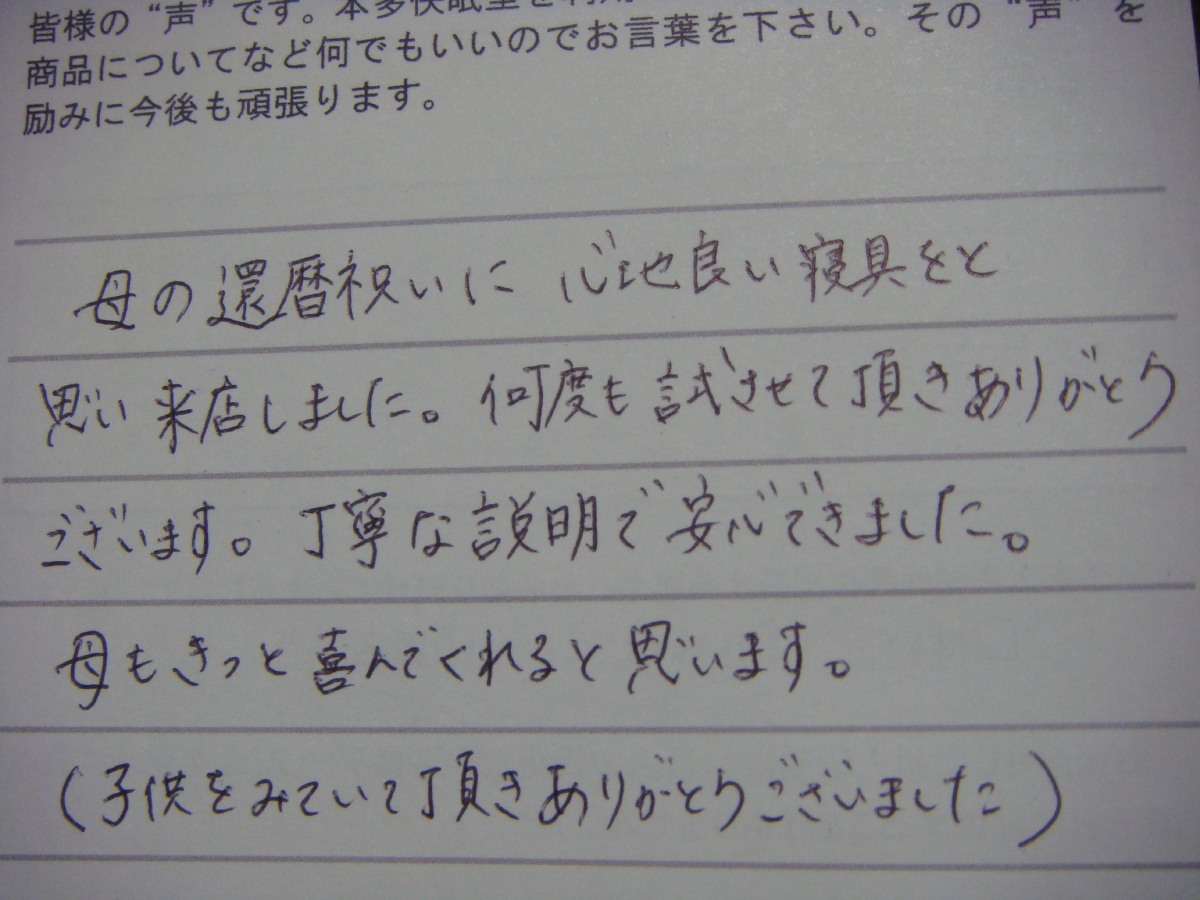 皆様の“声”です。本多快眠室を利用
商品についてなど何でもいいのでお言葉を下さい。その“声”を
励みに今後も頑張ります。
母の還暦祝いに 心地良い寝具をと
思い来店しました。何度も試させて頂きありがとう
ございます。丁寧な説明で安心できました。
母もきっと喜んでくれると思います。
(子供をみていて頂きありがとうございました)